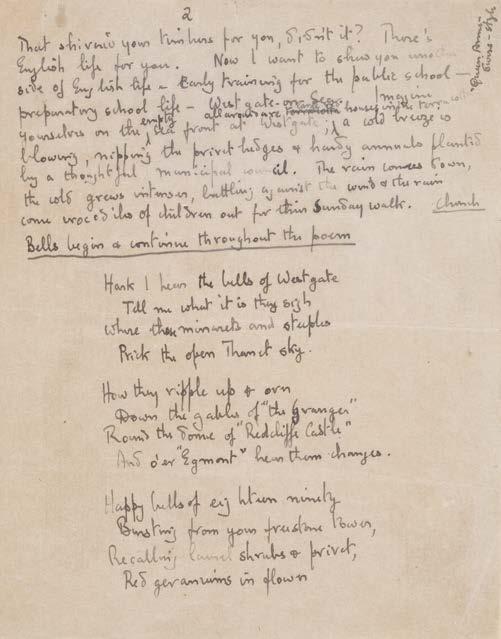 2
"Queen Anne-
ivre-style
That shiver'd your timbers for you, didn't it? There's
English life for you. Now I want to show you another
side of English life - Early training for the public school -
preparatory school life - Westgate-on-Sea. Imagine
empty all around are terracotta houses in the
yourselves on the sea front at Westgate; a cold breeze is
blowing, nipping the privet hedges & hardy annuals planted
by a thoughtful municipal council. The rain comes down,
the cold grows intenser, battling against the wind & the rain
come crocodiles of children out for their Sunday walk. Church
Bells begin & continue throughout the poem
Hark I hear the bells of Westgate
Tell me what it is they sigh
Where those minarets and steeples
Prick the open Thanet sky.
How they ripple up & orn
Down the gables of "the Granger"
Round the dome of "Redcliffe Castle"
And o'er "Egmont" hear them changes.
Happy bells of eighteen ninety
Bursting from your freestone tower,
Recalling laurel shrubs & privet,
Red geraniums in flown